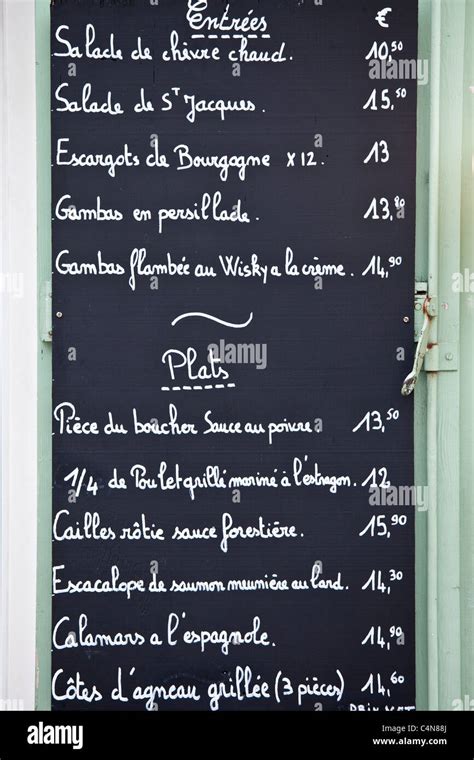 Entrées €
Salade de chèvre chaud. 10,50
Salade de St Jacques. 15,50
Escargots de Bourgogne x 12. 13
Gambas en persillade. 13,80
Gambas flambée au Wisky a la crème. 14,90
Plats
Pièce du boucher Sauce au poivre. 13,50
1/4 de Poulet grillé mariné à l'éstragon. 12
Cailles rôtie sauce forestière. 15,90
Escacalope de saumon meunière au lard. 14,30
Calamars a l'espagnole. 14,90
Côtes d'agneau grillée (3 pièces) 14,60
PRIX NET
alamy
Image ID: C4N88J
www.alamy.com